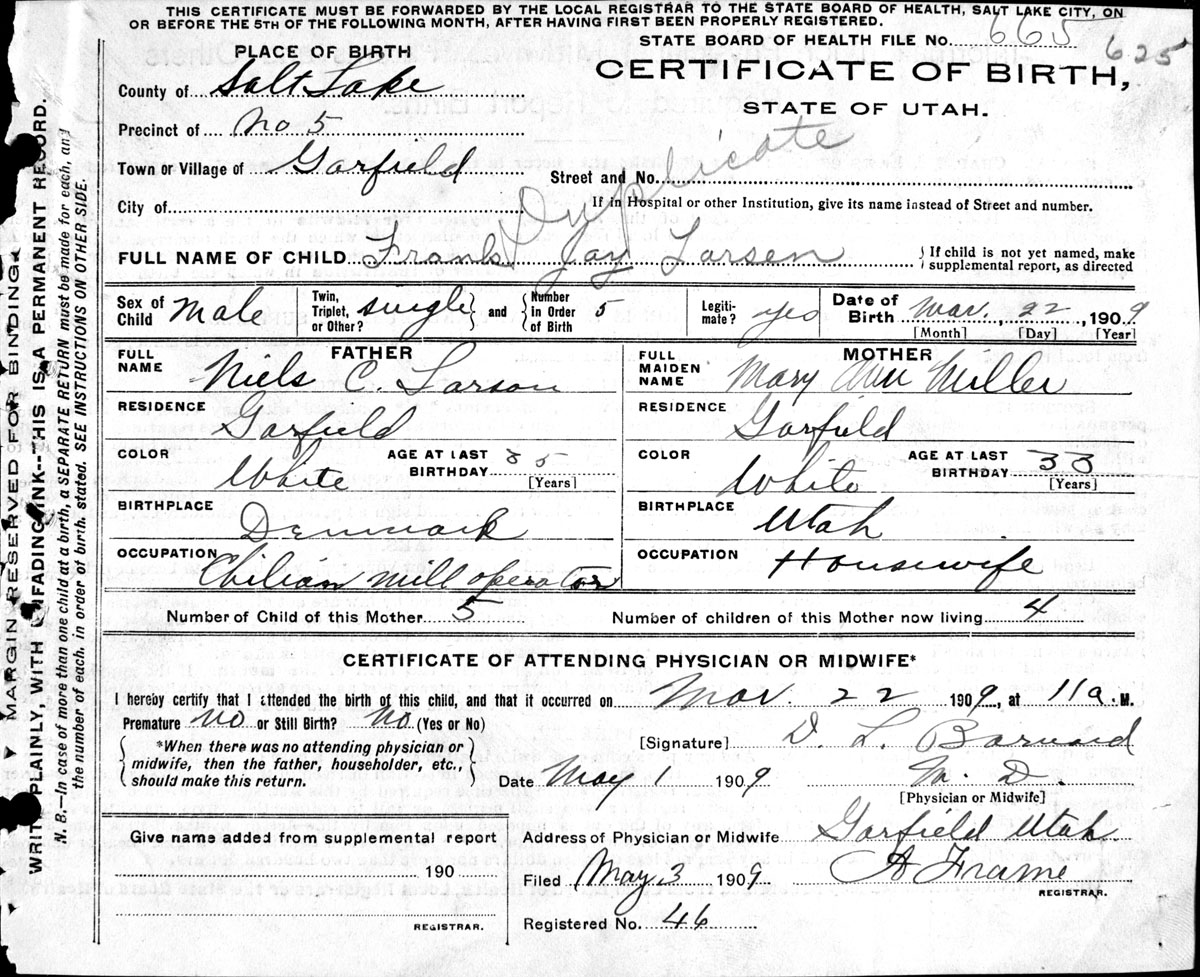 THIS CERTIFICATE MUST BE FORWARDED BY THE LOCAL REGISTRAR TO THE STATE BOARD OF HEALTH, SALT LAKE CITY, ON
OR BEFORE THE 5TH OF THE FOLLOWING MONTH, AFTER HAVING FIRST BEEN PROPERLY REGISTERED.
STATE BOARD OF HEALTH FILE No. 665 625
PLACE OF BIRTH
CERTIFICATE OF BIRTH,
STATE OF UTAH.
County of Salt Lake
Precinct of No 5
Duplicate
Town or Village of Garfield
Street and No.
City of
If in Hospital or other Institution, give its name instead of Street and number.
FULL NAME OF CHILD Frank Jay Larsen { If child is not yet named, make
supplemental report, as directed
Sex of Child Male Twin, Triplet, or Other? single } and { Number in Order of Birth 5 Legiti-mate? yes Date of Birth Mar. 22, 1909
[Month] [Day] [Year]
FATHER MOTHER
FULL NAME Niels C. Larson FULL MAIDEN NAME Mary Ann Miller
RESIDENCE Garfield RESIDENCE Garfield
COLOR White AGE AT LAST BIRTHDAY 35 [Years] COLOR White AGE AT LAST BIRTHDAY 33 [Years]
BIRTHPLACE Denmark BIRTHPLACE Utah
OCCUPATION Chilian Mill operator OCCUPATION Housewife
Number of Child of this Mother 5 Number of children of this Mother now living 4
CERTIFICATE OF ATTENDING PHYSICIAN OR MIDWIFE*
I hereby certify that I attended the birth of this child, and that it occurred on Mar. 22 1909, at 11a.M.
Premature No or Still Birth? No (Yes or No)
{ *When there was no attending physician or
midwife, then the father, householder, etc.,
should make this return. }
[Signature] D. L. Barnard
Date May 1 1909 M. D.
[Physician or Midwife]
Give name added from supplemental report
190
REGISTRAR.
Address of Physician or Midwife Garfield Utah
Filed May 3 1909 A Frame
REGISTRAR.
Registered No. 46
MARGIN RESERVED FOR BINDING
WRITE PLAINLY, WITH UNFADING INK--THIS IS A PERMANENT RECORD.
N. B.—In case of more than one child at a birth, a SEPARATE RETURN must be made for each, and
the number of each, in order of birth, stated. SEE INSTRUCTIONS ON OTHER SIDE.